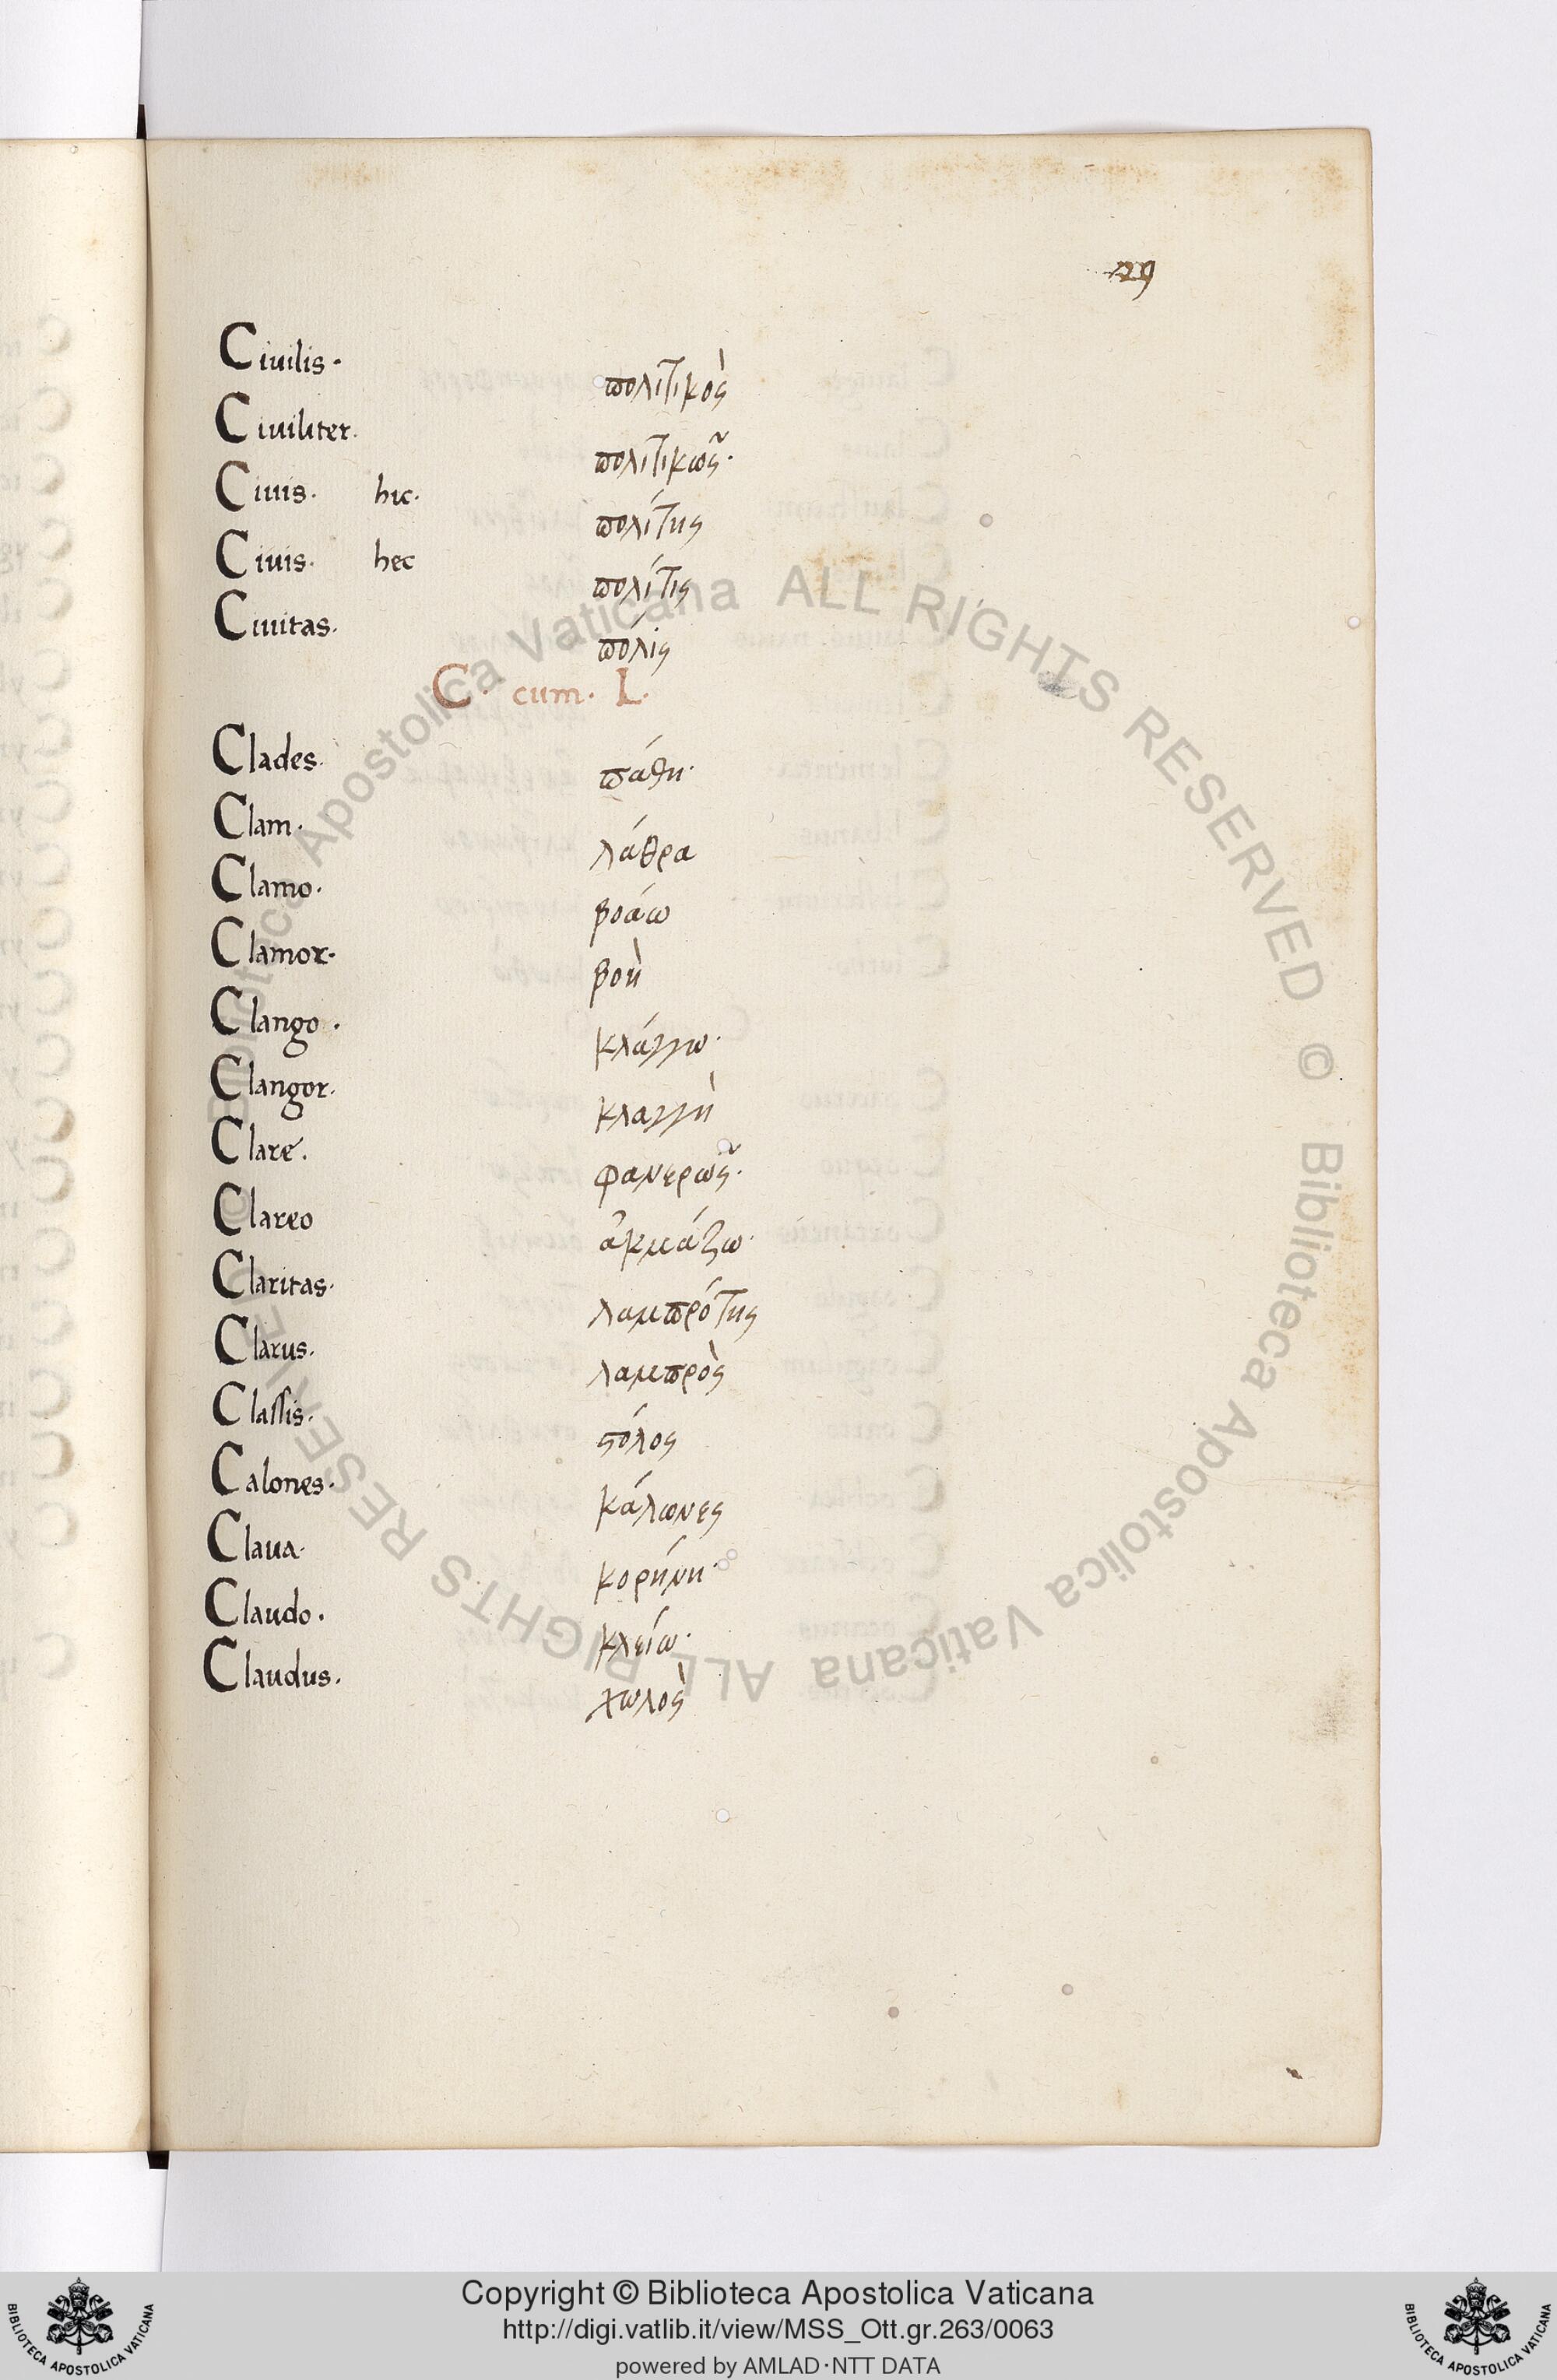 29
Ciuilis. πολιτικὸς
Ciuiliter. πολιτικῶς.
Ciuis. hic. πολίτης
Ciuis. hec πολίτις
Ciuitas. πόλις
C. cum. L.
Clades. πάθη.
Clam. λάθρα
Clamo. βοάω
Clamor. βοὴ
Clango. κλάγγω.
Clangor. κλαγγὴ
Clare. φανερῶς.
Clareo ἀκμάζω.
Claritas. λαμπρότης
Clarus. λαμπρὸς
Classis. στόλος
Calones. κάλωνες
Claua. κορήνη.
Claudo. κλείω.
Claudus. χωλὸς
© Biblioteca Apostolica Vaticana ALL RIGHTS RESERVED © Biblioteca Apostolica Vaticana ALL RIGHTS RESERVED
Copyright © Biblioteca Apostolica Vaticana
http://digi.vatlib.it/view/MSS_Ott.gr.263/0063
powered by AMLAD·NTT DATA
BIBLIOTECA APOSTOLICA VATICANA
BIBLIOTECA APOSTOLICA VATICANA